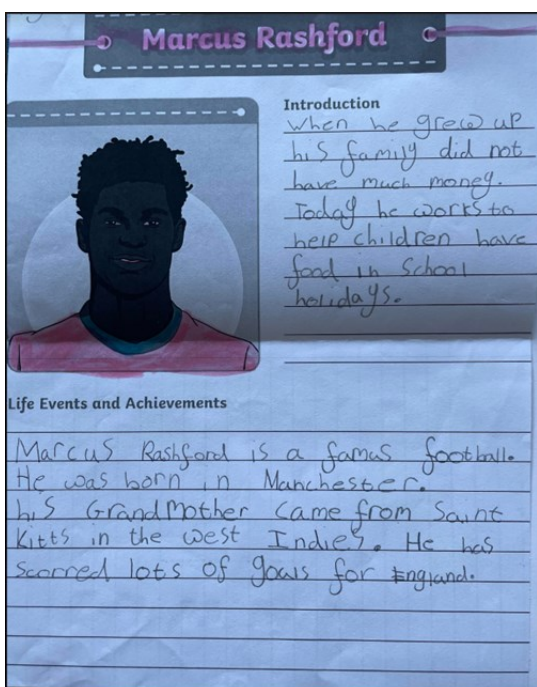 Marcus Rashford
Introduction
When he grew up
his family did not
have much money.
Today he works to
help children have
food in School
holidays.
Life Events and Achievements
Marcus Rashford is a famus football.
He was born in Manchester.
his GrandMother came from Saint
Kitts in the west Indies. He has
scorred lots of goals for England.